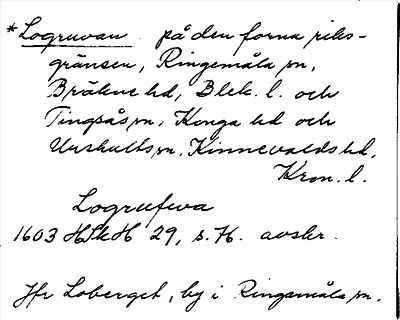 *Logruvan på den forna riks-
gränsen, Ringamåla sn,
Bräkne hd, Blek. l. och
Tingsås sn, Konga hd och
Urshults sn, Kinnevalds hd,
Kron. l.
Logrufwa
1603 HSkH 29, s. 76. avskr.
Jfr Loberget, by i Ringamåla sn.